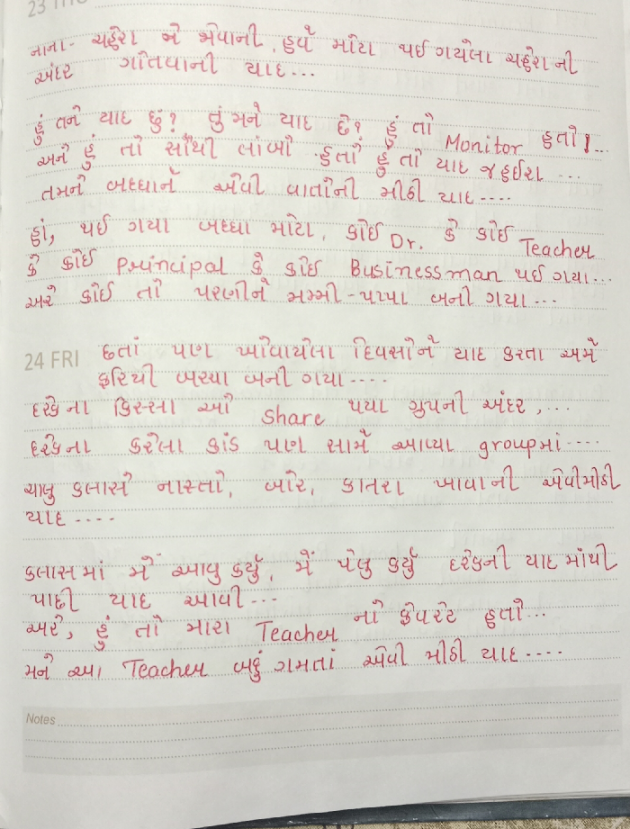 23 THU
નાના- ચહેરા એ એવાની, હવે મોટા થઈ ગયેલા ચહેરાની
અંદર ગોતવાની યાદ...
હું તને યાદ છું? તું મને યાદ છે? હું તો Monitor હતો!...
અને હું તો સૌથી લાંબો હતો હું તો યાદ જ હઈશ ...
તમને બધ્ધાને એવી વાતોની મીઠી યાદ....
હાં, થઈ ગયા બધ્ધા મોટા, કોઈ Dr. કે કોઈ Teacher
કે કોઈ Principal કે કોઈ Businessman થઈ ગયા...
અરે કોઈ તો પરણીને મમ્મી-પપ્પા બની ગયા...
24 FRI છતાં પણ ખોવાયેલા દિવસોને યાદ કરતા અમે
ફરિથી બચ્ચા બની ગયા....
દરેકના કિસ્સાઓ share થયા ગ્રુપની અંદર,...
દરેકના કરેલા કાંડ પણ સામે આવ્યા groupમાં....
ચાલુ ક્લાસે નાસ્તો, બોર, કાતરા ખાવાની એવીમીઠી
યાદ ....
ક્લાસમાં મેં આવુ કર્યું, મેં પેલુ કર્યું દરેકની યાદ માંથી
પાછી યાદ આવી...
અરે, હું તો મારા Teacher નો ફેવરેટ હતો...
મને આ Teacher બહું ગમતાં એવી મીઠી યાદ....
Notes